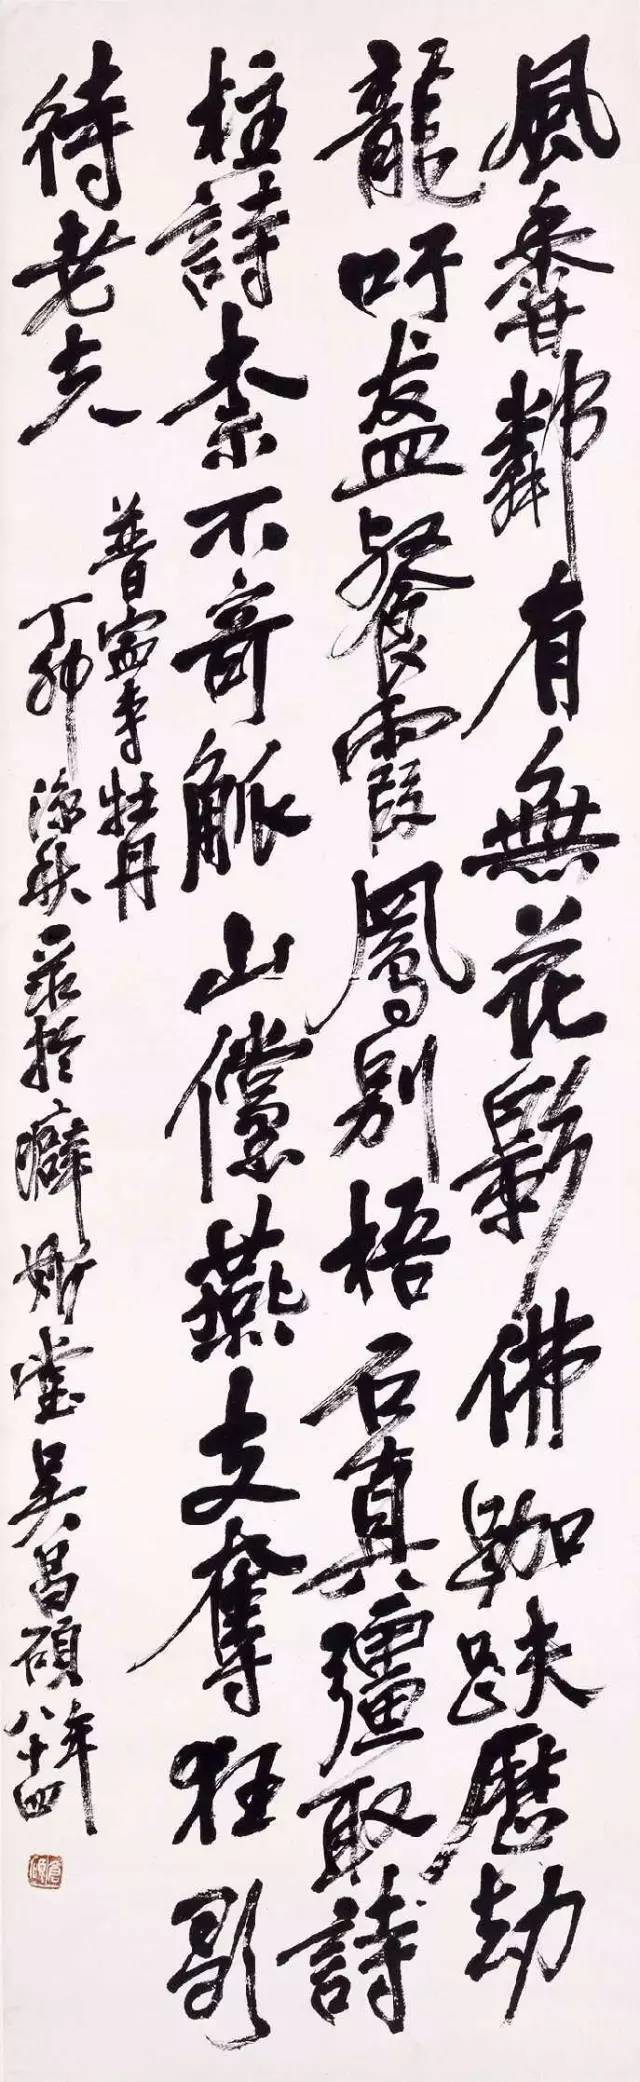 風香鄰有無花影佛跏趺歷劫
龍吁盋餐霞鳳別梧石真彊取詩
柱詩素不奇觚山儻燕支奪狂歌
待老夫
普寧寺牡丹
丁卯涼秋录於癖斯堂吳昌碩年八十四